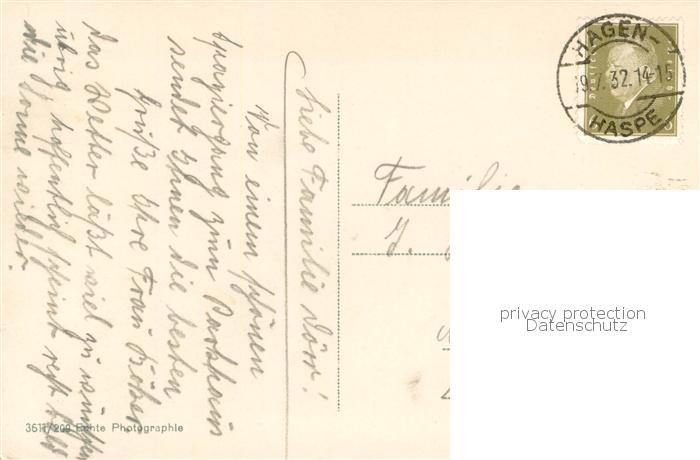 Liebe Familie Dörr!
Von einem schönen
Spaziergang zum Parkhaus
sendet Ihnen die besten
Grüße Ihre Frau
Das Wetter läßt viel zu wünschen
übrig hoffentlich scheint recht bald
die Sonne wieder.
3611/209 Echte Photographie
HAGEN-
9.7.32.14-15
HASPE
Familie
J.
privacy protection
Datenschutz